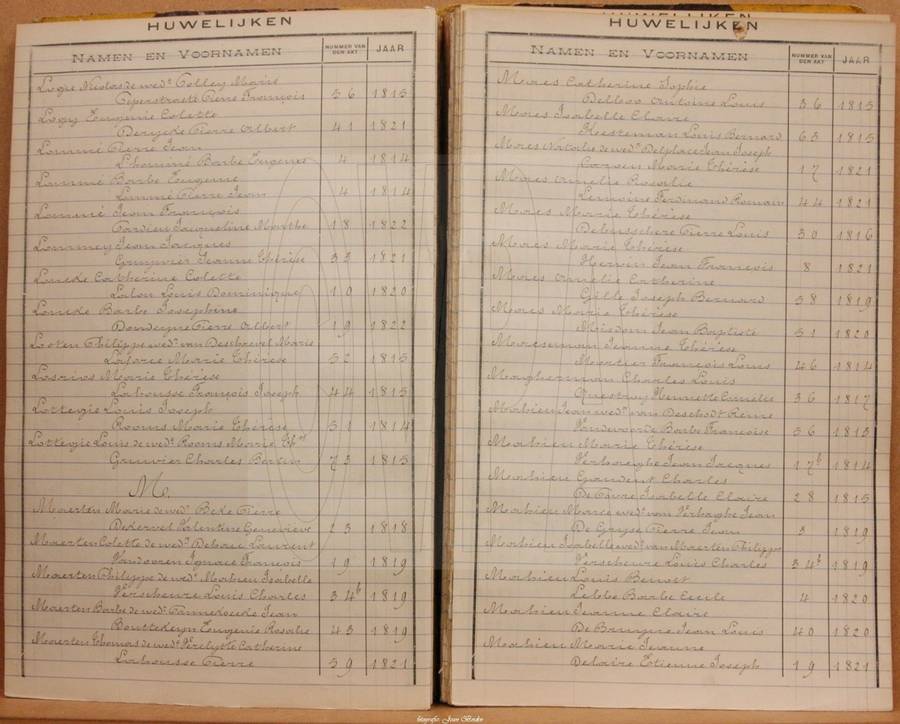 HUWELIJKEN
NAMEN EN VOORNAMEN NUMMER VAN DEN AKT JAAR
Logie Nicolas de wed.ʳ Colley Marie
Ceperstraete Pierre François 56 1815
Logy Eugenie Colette
Derycke Pierre Albert 41 1821
Lommé Pierre Jean
Lhommé Barbe Eugenie 4 1814
Lommé Barbe Eugenie
Lommé Pierre Jean 4 1814
Lommé Jean François
Jacqueline Monthe 18 1822
Lonmey Jean Jacques
Gruwier Jeanne Thérèse 33 1821
Loncke Catherine Colette
Lalou Louis Dominique 10 1820
Loncke Barbe Josephine
Pierre Albert 19 1822
Looten Philippe wed.ʳ van Marie
Laforce Marie Thérèse 52 1815
Losrios Marie Thérèse
Lahousse François Joseph 44 1815
Lottegie Louis Joseph
Rooms Marie Thérèse 51 1814
Lottegie Louis de wed.ʳ Rooms Marie Th.
Gruwier Charles Bertin 73 1815
M.
Maerten Marie de wed.ᵉ Beke Pierre
Dekervel Valentine Geneviève 23 1818
Maerten Colette de wed.ᵉ Laurent
Vandooren Ignace François 19 1819
Maerten Philippe de wed.ʳ Mahieu Isabelle
Verscheure Louis Charles 34ᵇ 1819
Maerten Barbe de wed.ᵉ Pannekoeke Jean
Bouttekeyn Eugenie Rosalie 43 1819
Maerten Thomas de wed.ʳ Catherine
Lahousse Pierre 59 1821
HUWELIJKEN
HUWELIJKEN
NAMEN EN VOORNAMEN NUMMER VAN DEN AKT JAAR
Maes Catherine Sophie
Antoine Louis 36 1815
Maes Isabelle Claire
Hesteman Louis Bernard 63 1815
Maes Natalie de wed.ᵉ Delplace Jean Joseph
Marie Thérèse 17 1821
Maes Amelie Rosalie
Lemoine Ferdinand Romain 44 1821
Maes Marie Thérèse
Debusschere Pierre Louis 30 1816
Maes Marie Thérèse
Herwin Jean François 8 1821
Maes Amelie Catherine
Gille Joseph Bernard 58 1819
Maes Marie Thérèse
Jean Baptiste 51 1820
Maeseman Jeanne Thérèse
Mortier François Louis 46 1814
Magherman Charles Louis
Questroy Hennette Amelie 36 1817
Mahieu Jean wed.ʳ van Deschodt Reine
Vandevoorde Barbe Françoise 56 1815
Mahieu Marie Thérèse
Jean Jacques 17ᵇ 1814
Mahieu Charles
De Favre Isabelle Claire 28 1815
Mahieu Marie wed.ᵉ van Verhaghe Jean
De Gryse Pierre Jean 3 1819
Mahieu Isabelle wed.ᵉ van Maerten Philippe
Verscheure Louis Charles 34ᵇ 1819
Mahieu Louis Benoit
Lebbe Barbe Cecile 4 1820
Mahieu Jeanne Claire
De Bruyne Jean Louis 40 1820
Mahieu Marie Jeanne
Delaire Etienne Joseph 19 1821
fotografie: Jean Boidin